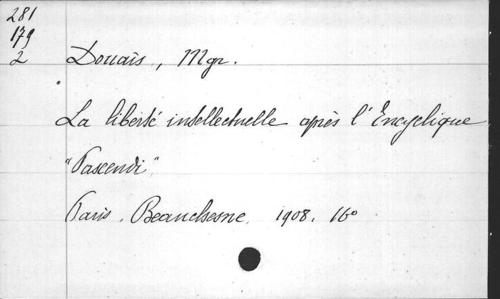 281
179
2
Douais, Mgr.
La liberté intellectuelle après l'Encyclique
"Pascendi"
Paris. Beauchesne. 1908. 16°